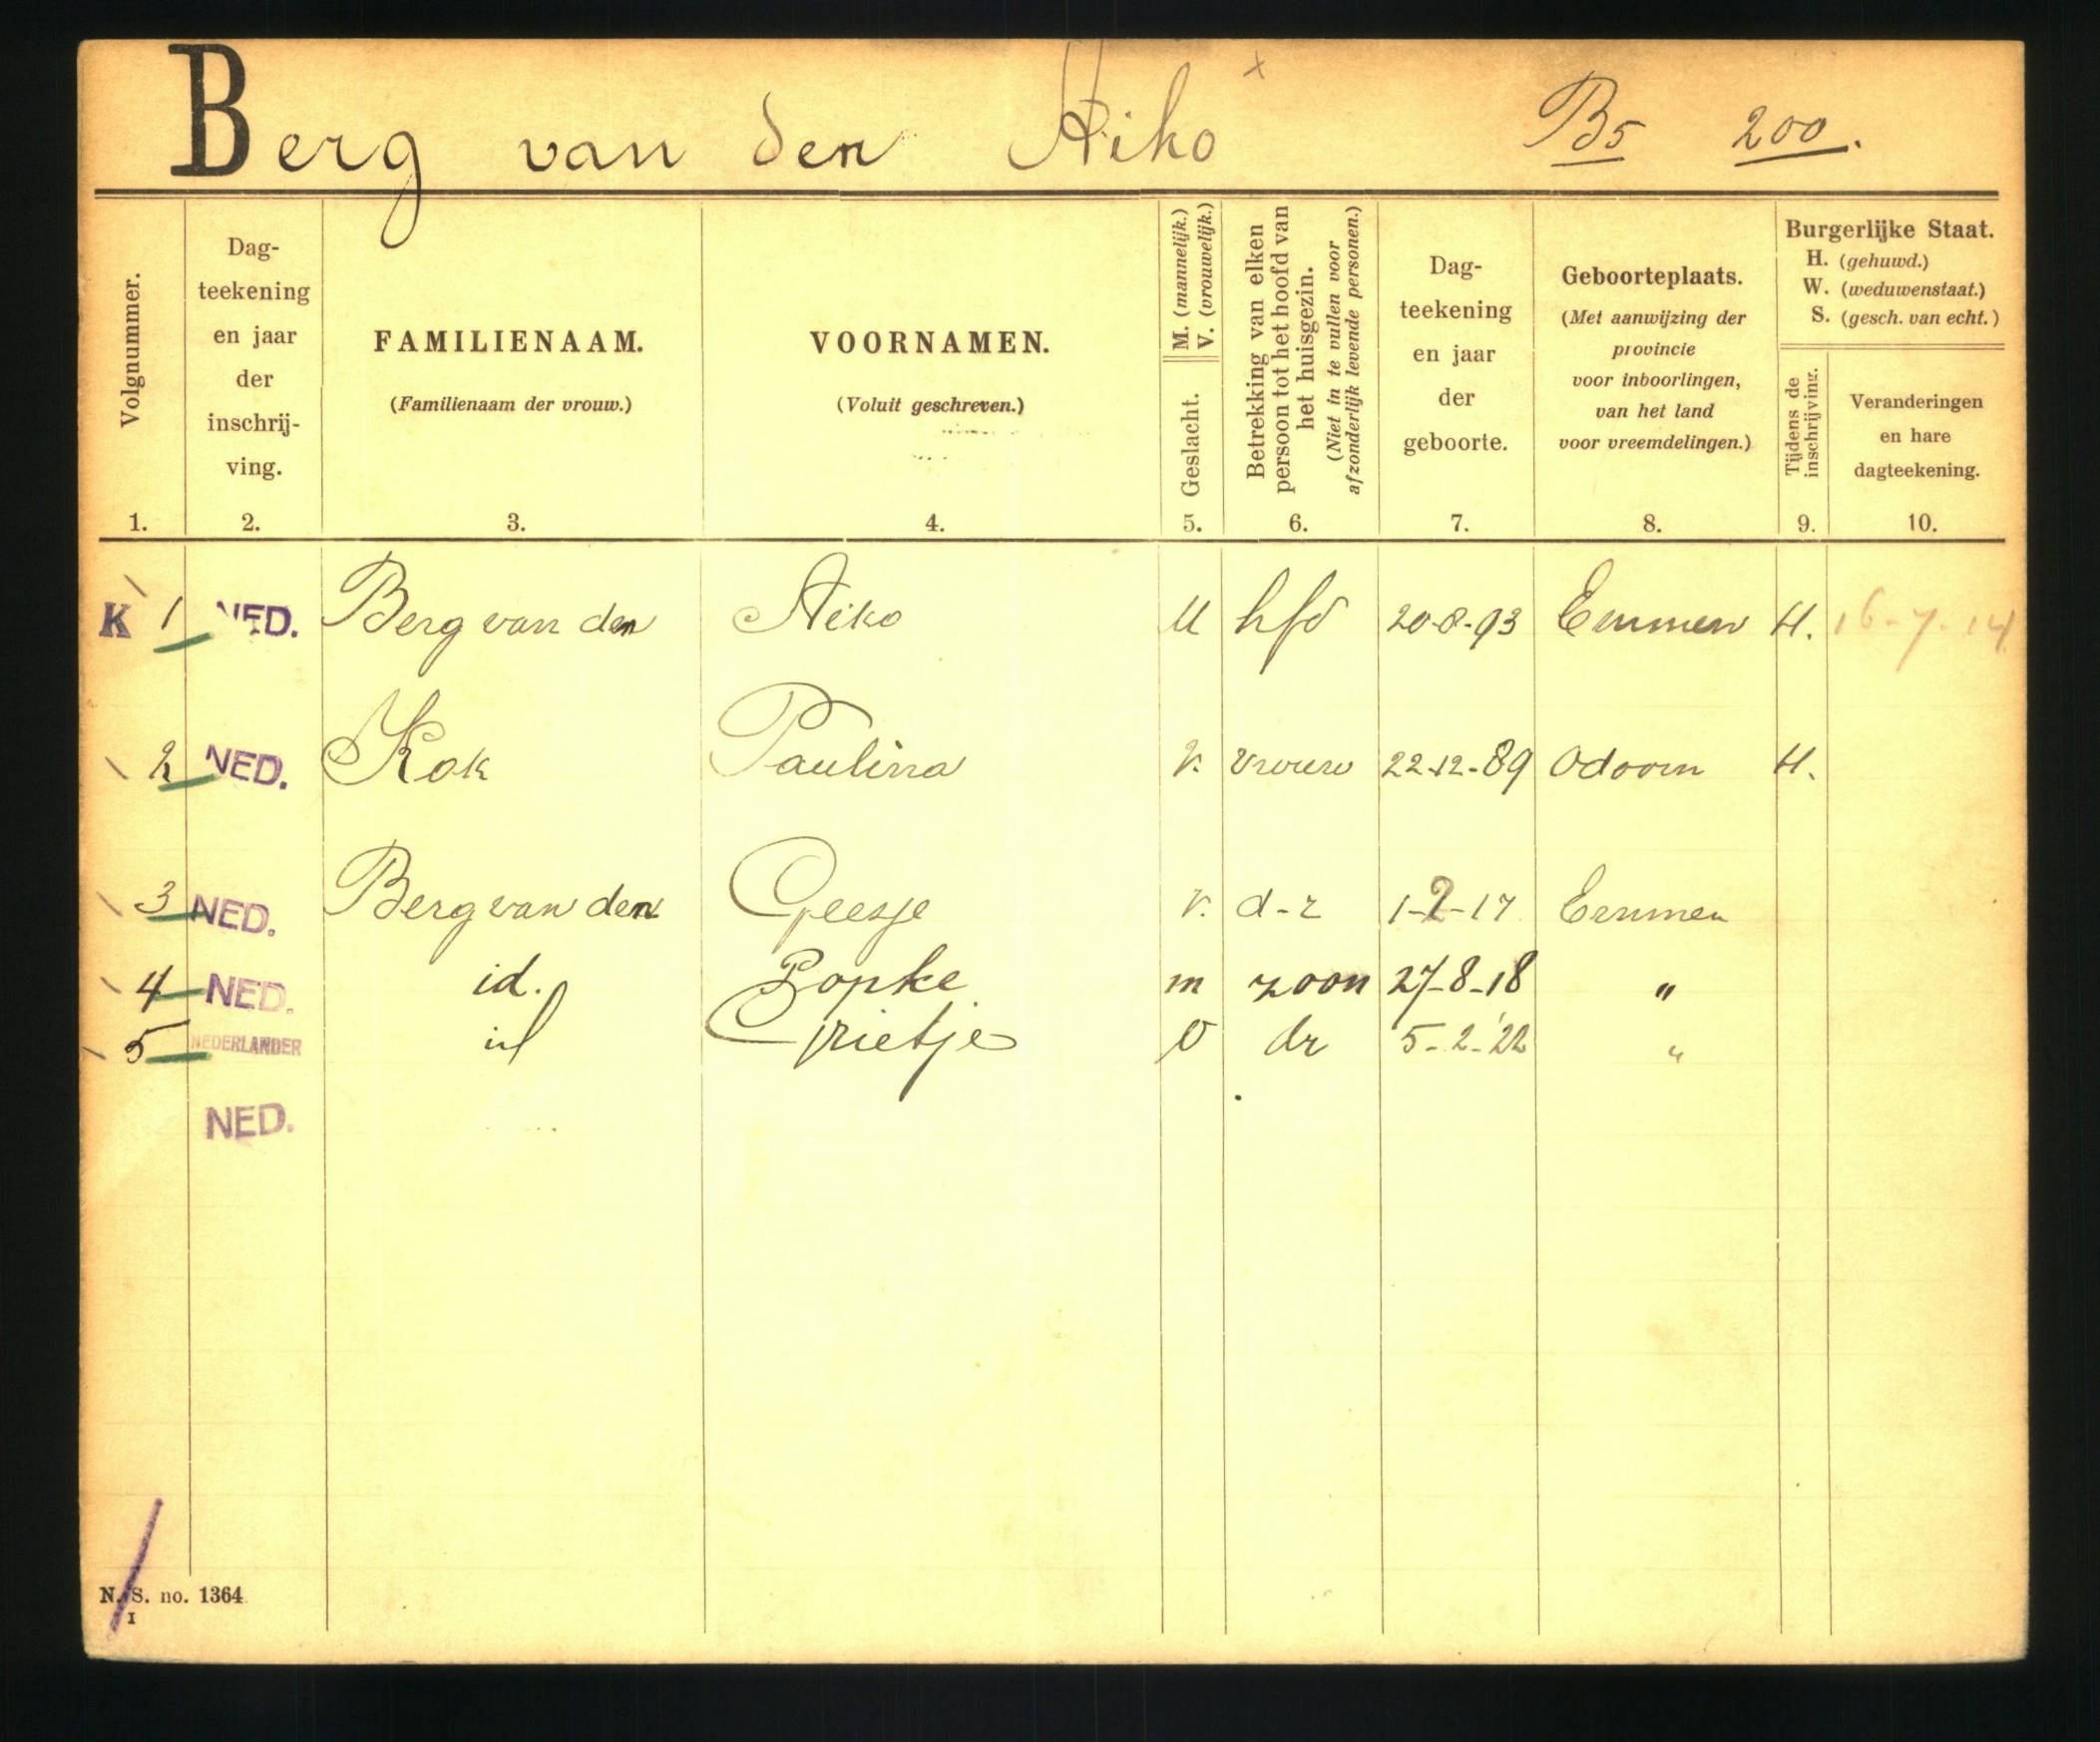 Berg van den Aiko x B5 200.
Volgnummer.
1.
Dag-
teekening
en jaar
der
inschrij-
ving.
2.
FAMILIENAAM.
(Familienaam der vrouw.)
3.
VOORNAMEN.
(Voluit geschreven.)
4.
M. (mannelijk.)
V. (vrouwelijk.)
Geslacht.
5.
Betrekking van elken
persoon tot het hoofd van
het huisgezin.
(Niet in te vullen voor
afzonderlijk levende personen.)
6.
Dag-
teekening
en jaar
der
geboorte.
7.
Geboorteplaats.
(Met aanwijzing der
provincie
voor inboorlingen,
van het land
voor vreemdelingen.)
8.
Burgerlijke Staat.
H. (gehuwd.)
W. (weduwenstaat.)
S. (gesch. van echt.)
Tijdens de
inschrijving.
9.
Veranderingen
en hare
dagteekening.
10.
K 1 NED. Berg van den Aiko M hfd 20-8-93 Emmen H. 16-7-14
2 NED. Kok Paulina V. vrouw 22-12-89 Odoorn H.
3 NED. Berg van den Geesje V. d-r 1-2-17 Emmen
4 NED. id. Popke m zoon 27-8-18 "
5 NEDERLANDER id Grietje V dr 5-2-'22 "
NED.
N. S. no. 1364
I